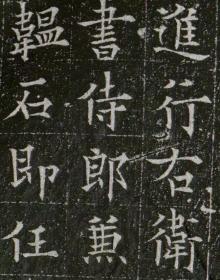 進行右衛
書侍郎兼
韞石即任